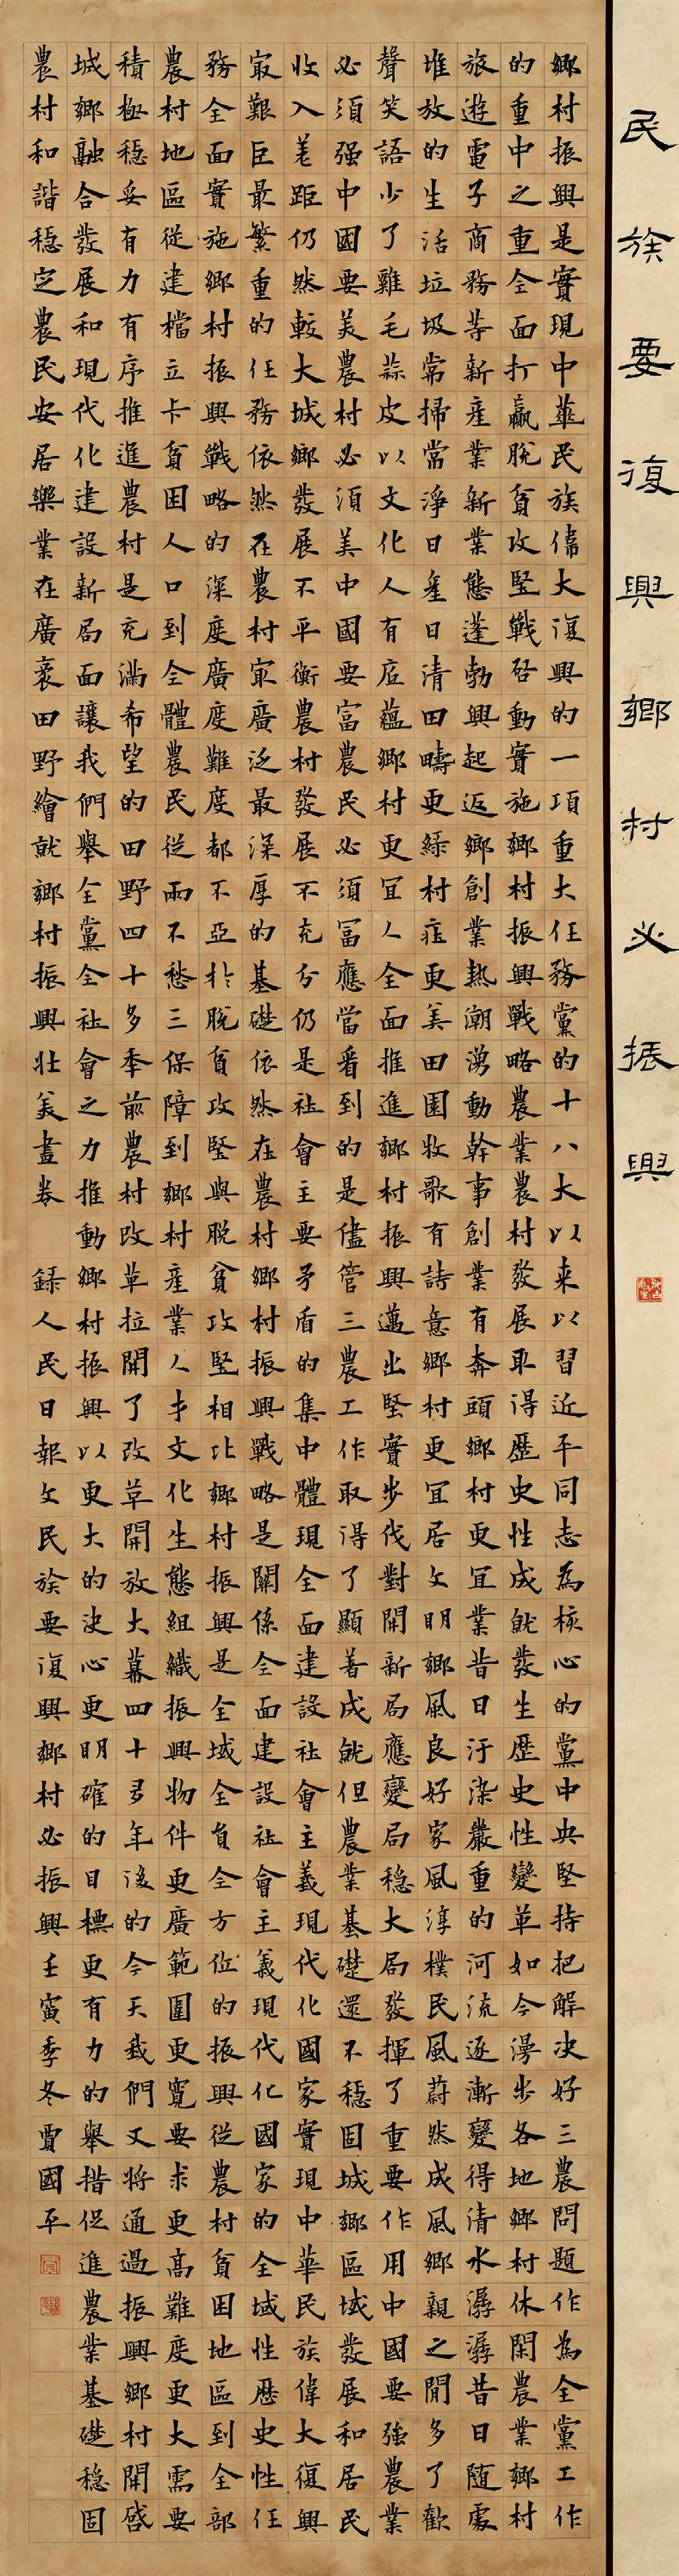 民族要復興鄉村必振興
鄉村振興是實現中華民族偉大復興的一項重大任務黨的十八大以来以習近平同志為核心的黨中央堅持把解决好三農問題作為全黨工作
的重中之重全面打贏脱貧攻堅戰啓動實施鄉村振興戰略農業農村發展取得歷史性成就發生歷史性變革如今漫步各地鄉村休閑農業鄉村
旅遊電子商務等新產業新業態蓬勃興起返鄉創業熱潮湧動幹事創業有奔頭鄉村更宜業昔日汙染嚴重的河流逐漸變得清水潺潺昔日随處
堆放的生活垃圾常掃常淨日產日清田疇更綠村莊更美田園牧歌有詩意鄉村更宜居文明鄉風良好家風淳樸民風蔚然成風鄉親之間多了歡
聲笑語少了雞毛蒜皮以文化人有底蘊鄉村更宜人全面推進鄉村振興邁出堅實步伐對開新局應變局穩大局發揮了重要作用中國要強農業
必須强中國要美農村必須美中國要富農民必須富應當看到的是儘管三農工作取得了顯著成就但農業基礎還不穩固城鄉區域發展和居民
收入差距仍然較大城鄉發展不平衡農村發展不充分仍是社會主要矛盾的集中體現全面建設社會主義現代化國家實現中華民族偉大復興
最艱巨最繁重的任務依然在農村最廣泛最深厚的基礎依然在農村鄉村振興戰略是關係全面建設社會主義現代化國家的全域性歷史性任
務全面實施鄉村振興戰略的深度廣度難度都不亞於脱貧攻堅與脱貧攻堅相比鄉村振興是全域全員全方位的振興從農村貧困地區到全部
農村地區從建檔立卡貧困人口到全體農民從兩不愁三保障到鄉村産業人才文化生態組織振興物件更廣範圍更寬要求更高難度更大需要
積極穩妥有力有序推進農村是充滿希望的田野四十多年前農村改革拉開了改革開放大幕四十多年後的今天我們又將通過振興鄉村開啓
城鄉融合發展和現代化建設新局面讓我們舉全黨全社會之力推動鄉村振興以更大的決心更明確的目標更有力的舉措促進農業基礎穩固
農村和諧穩定農民安居樂業在廣袤田野繪就鄉村振興壯美畫卷 録人民日報文民族要復興鄉村必振興壬寅季冬賈國平